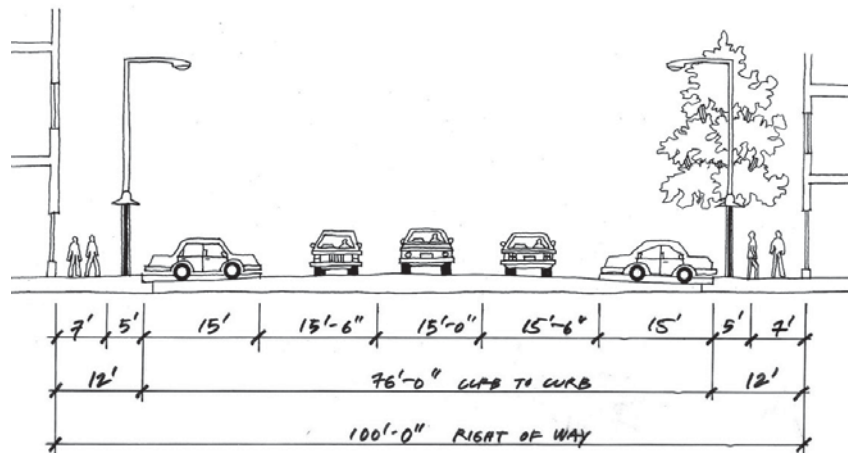 7' 5' 15' 15'-6" 15'-0" 15'-6" 15' 5' 7'
12' 76'-0" CURB TO CURB 12'
100'-0" RIGHT OF WAY